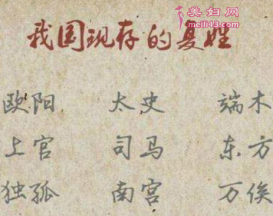 美妇网
meifu114.com
我国现存的复姓
欧阳 太史 端木
上官 司马 东方
独孤 南宫 万俟